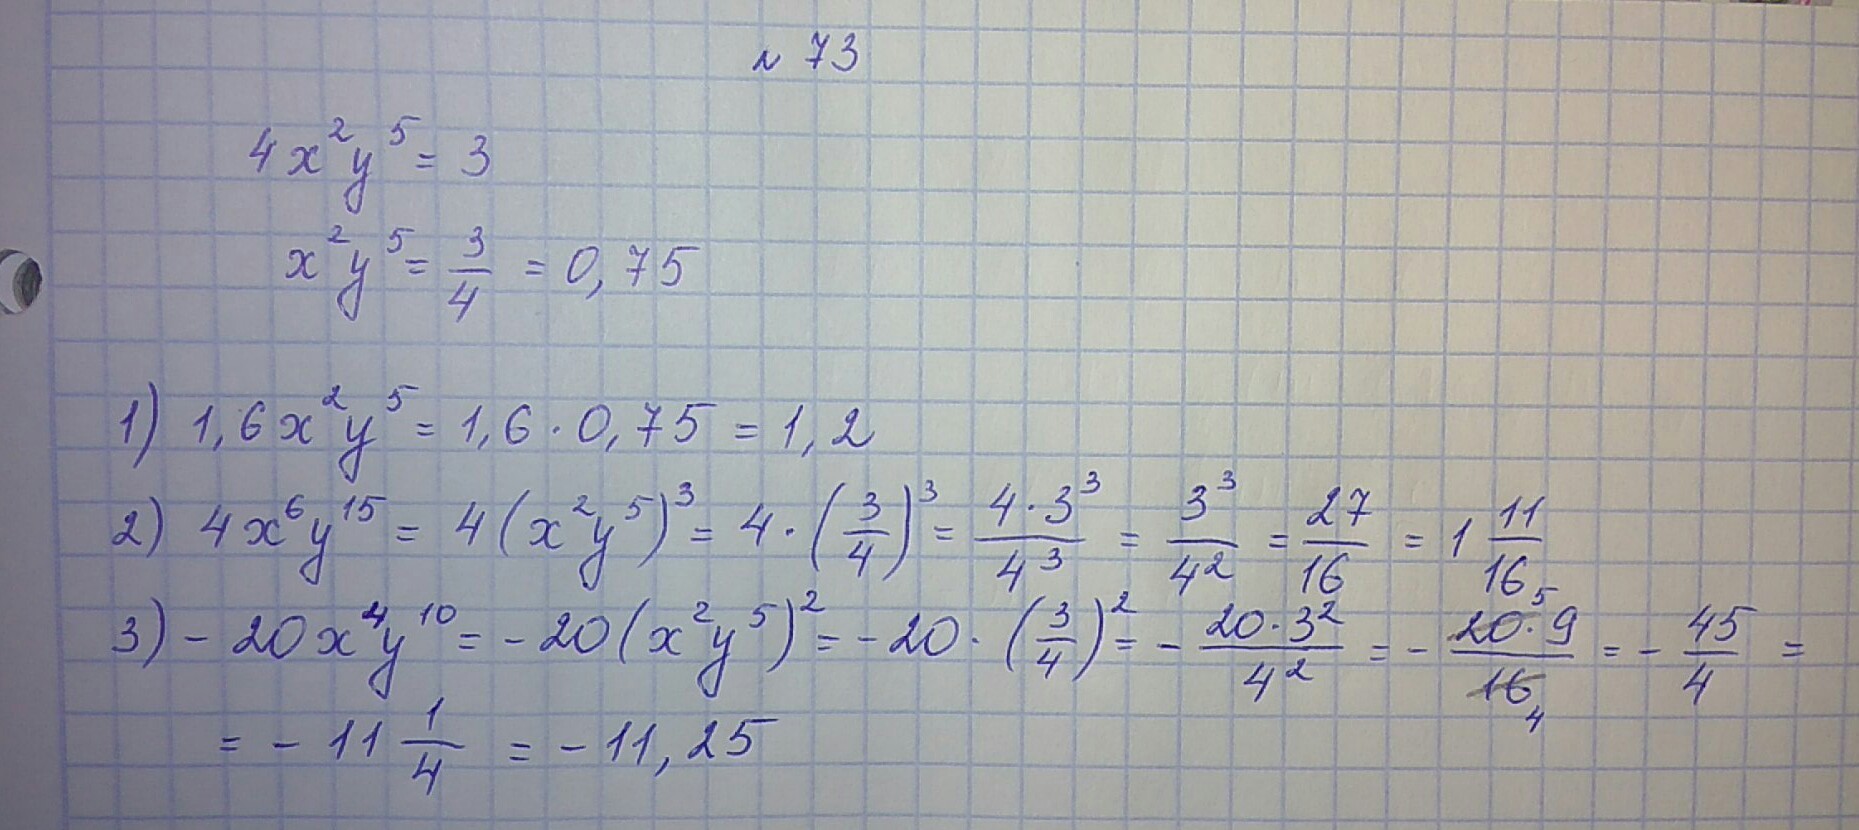 № 73
4x²y⁵ = 3
x²y⁵ = 3/4 = 0,75
1) 1,6x²y⁵ = 1,6 · 0,75 = 1,2
2) 4x⁶y¹⁵ = 4(x²y⁵)³ = 4 · (3/4)³ = 4·3³/4³ = 3³/4² = 27/16 = 1 11/16
3) - 20x⁴y¹⁰ = - 20(x²y⁵)² = - 20 · (3/4)² = - 20·3²/4² = - 20⁵·9/16₄ = - 45/4 =
= - 11 1/4 = - 11,25